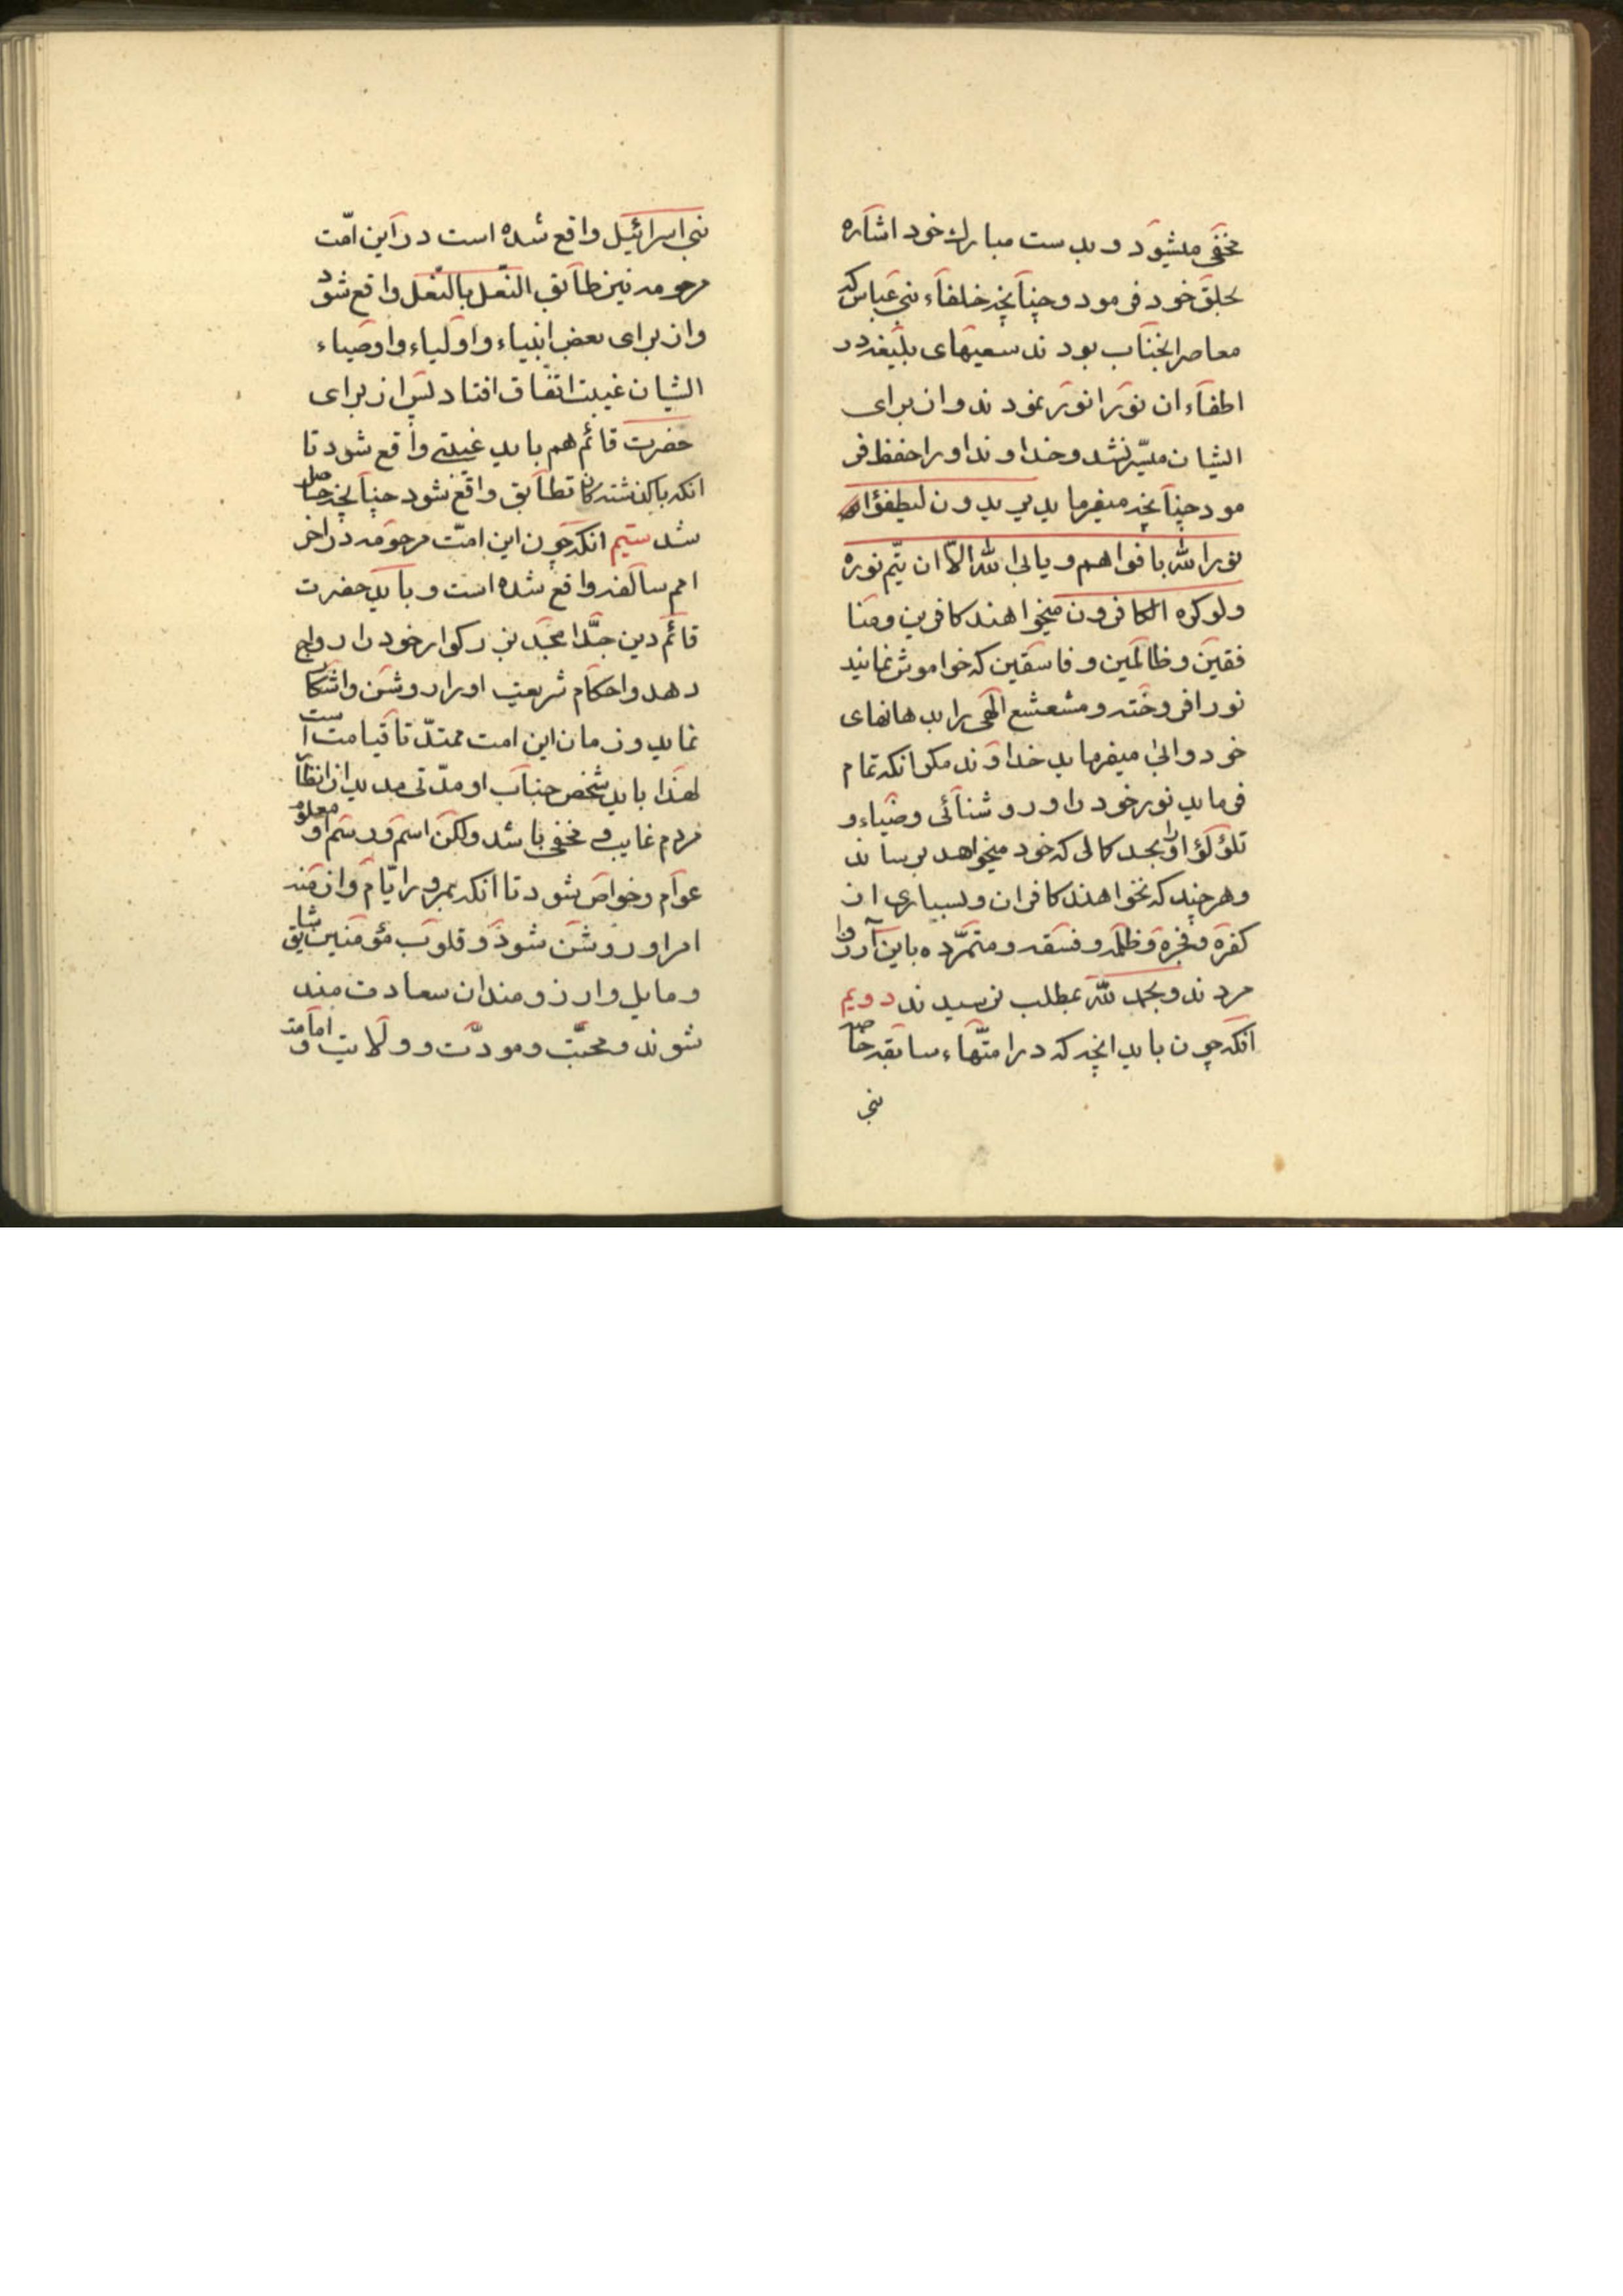 مخفی میشود و بدست مبارك خود اشاره
بحلق خود فرمود و چنانچه خلفاء بنی عباس که
معاصر انجناب بودند سعیهای بلیغه در
اطفاء ان نور انور نمودند و از برای
ایشان میسّر نشد و خداوند او را حفظ فر
مود چنانچه میفرماید یریدون لیطفؤا
نور الله بافواههم و یابی الله الاّ ان یتم نوره
ولو کره الکافرون میخواهند کافرین و منا
فقین و ظالمین و فاسقین که خواموش نمانید
نور افروخته و مشعشع الهی را بدهانهای
خود و ابی میفرماید خداوند مکر انکه تمام
فرماید نور خود را و روشنائی و ضیاء و
تلؤلؤ او را بحد کمالی که خود میخواهد برساند
و هر چند که نخواهند کافران و بسیاری از
کفره و فجره و ظلمه و فسقه و متمرّده باین آرزو
مردند و بحمد لله بمطلب نرسیدند دویم
انکه چون باید انچه که در امتّهاء سابقه خاصه
بنی
بنی اسرائیل واقع شده است در این امّت
مرحومه نیز طابق النّعل بالنّعل واقع شود
و از برای بعض انبیاء و اولیاء و اوصیاء
ایشان غیبت اتفاق افتاد پس از برای
حضرت قائم هم باید غیبتی واقع شود تا
انکه با کذشتهکان تطابق واقع شود چنانچه حاصل
شد سیّم انکه چون این امّت مرحومه در اخر
امم سالفه واقع شده است و باید حضرت
قائم دین جدّ امجد بزرکوار خود را رواج
دهد و احکام شریعت او را روشن و اشکار
نماید و زمان این امت ممتدّ تا قیامت است
لهذا باید شخص جناب او مدّتی مدید از انظار
مردم غایب و مخفی باشد ولکن اسم و رسم او معلوم
عوام و خواص شود تا انکه بمرور ایّام و ازمنه
امر او روشن شود و قلوب مؤمنین شایق
و مایل و ارزومند ان سعادت مند
شوند و محبّت و مودّت و ولایت و امامت